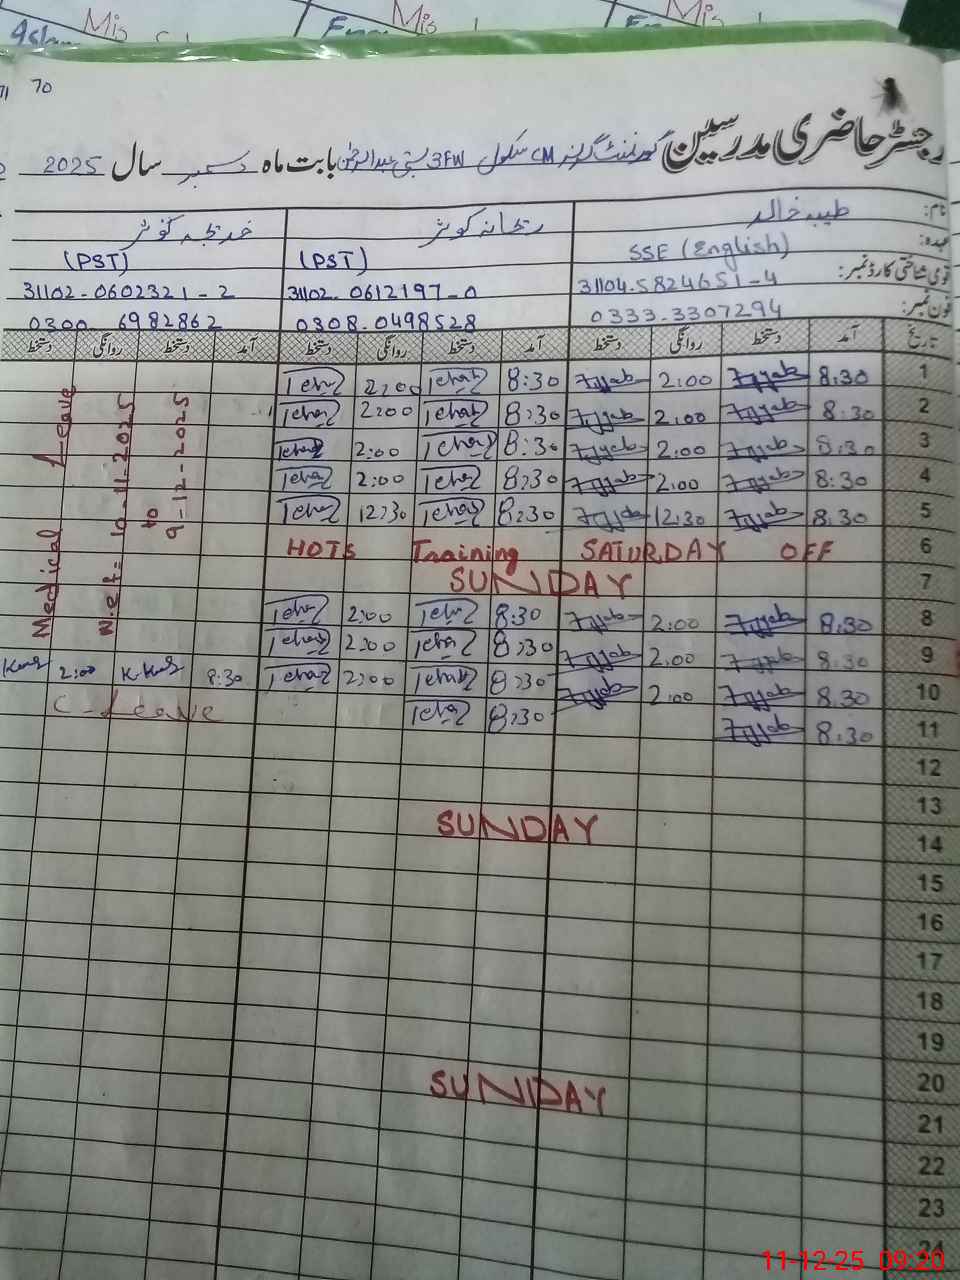 Mis
Mis
Mis
70
رجسٹر حاضری مدرسین گورنمنٹ گرلز CM سکول 3FW بستی عبدالرحمٰن بابت ماہ دسمبر سال 2025
نام: طیبہ خالد ریحانہ کوثر خدیجہ کوثر
عہدہ: SSE (English) (PST) (PST)
قومی شناختی کارڈ نمبر: 31104.5824651-4 31102.0612197-0 31102-0602321-2
فون نمبر: 0333.3307294 0308.0498528 0300 6982862
تاریخ آمد دستخط روانگی دستخط آمد دستخط روانگی دستخط آمد دستخط روانگی دستخط
1 8:30 Tayyab 2:00 Tayyab 8:30 2:00
2 8:30 Tayyab 2:00 Tayyab 8:30 2:00
3 8:30 Tayyab 2:00 Tayyab 8:30 2:00
4 8:30 Tayyab 2:00 Tayyab 8:30 2:00
5 8:30 Tayyab 12:30 Tayyab 8:30 12:30
Medical Leave
w.e.f. 10-11-2025
to
9-12-2025
6 HOTS Training SATURDAY OFF
7 SUNDAY
8 8:30 Tayyab 2:00 Tayyab 8:30 2:00
9 8:30 Tayyab 2:00 Tayyab 8:30 2:00
10 8:30 Tayyab 2:00 Tayyab 8:30 2:00 8:30 2:00
11 8:30 Tayyab 8:30 C-Leave
12
13
14 SUNDAY
15
16
17
18
19
20
21 SUNDAY
22
23
24
11-12-25 09:20